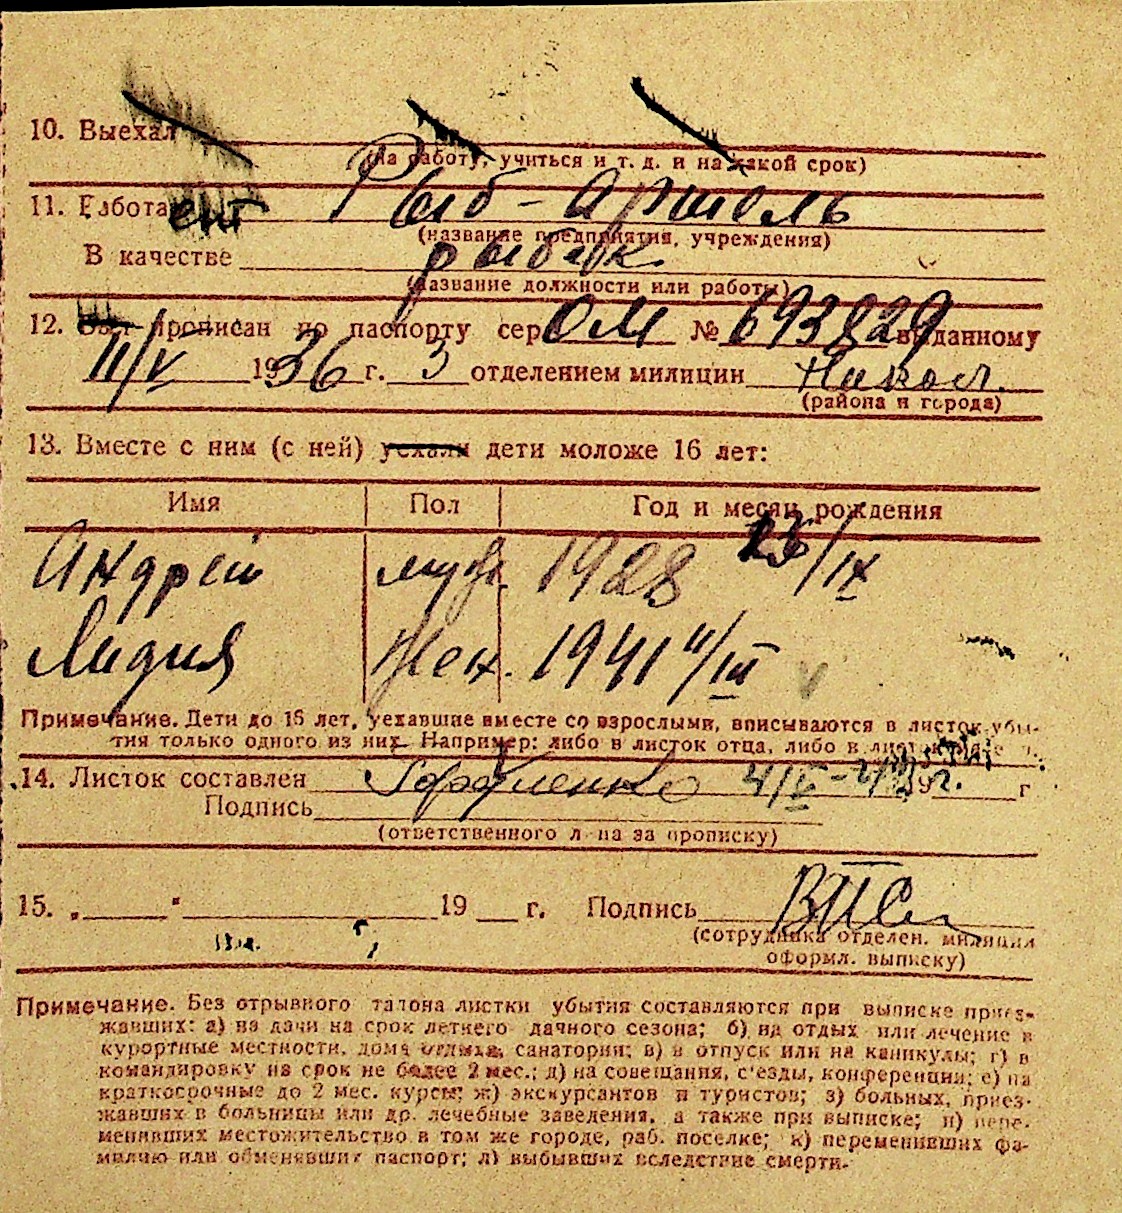 10. Выехал
(на работу, учиться и т. д. и на какой срок)
11. Работает Рыб-артель
(название предприятия, учреждения)
В качестве рыбак
(название должности или работы)
12. прописан по паспорту сер ОМ № 693829 выданному
11/V 1936 г. 3 отделением милиции Никол.
(района и города)
13. Вместе с ним (с ней) уехали дети моложе 16 лет:
Имя Пол Год и месяц рождения
Андрей муж 1928 /IX
Лидия Жен. 1941 11/III
Примечание. Дети до 16 лет, уехавшие вместе со взрослыми, вписываются в листок убы-
тия только одного из них. Например: либо в листок отца, либо в листок
14. Листок составлен г
Подпись
(ответственного л на за прописку)
15. „ “ 19 г. Подпись
(сотрудника отделен. милиции
оформл. выписку)
Примечание. Без отрывного талона листки убытия составляются при выписке приез-
жавших: а) на дачи на срок летнего дачного сезона; б) на отдых или лечение в
курортные местности, дома отдыха, санатории; в) в отпуск или на каникулы; г) в
командировку на срок не более 2 мес.; д) на совещания, с'езды, конференции; е) на
краткосрочные до 2 мес. курсы; ж) экскурсантов и туристов; з) больных, приез-
жавших в больницы или др. лечебные заведения, а также при выписке; и) пере-
менивших местожительство в том же городе, раб. поселке; к) переменивших фа-
милию или обменявших паспорт; л) выбывших вследствие смерти.